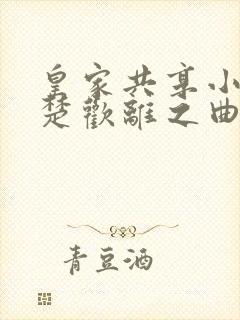 皇家共享小
楚歡離之曲
青豆酒